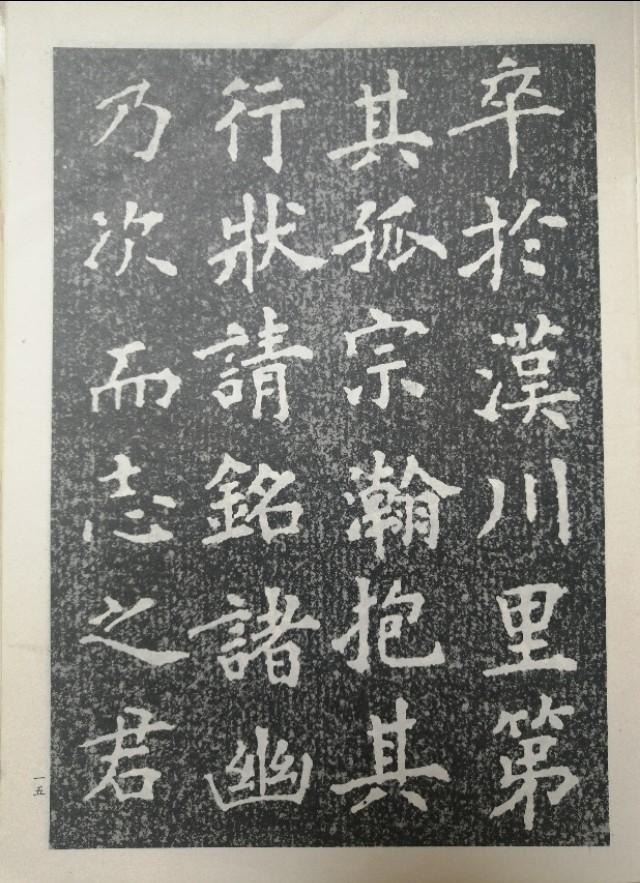 卒於漢川里第
其孤宗瀚抱其
行狀請銘諸幽
乃次而志之君
一五